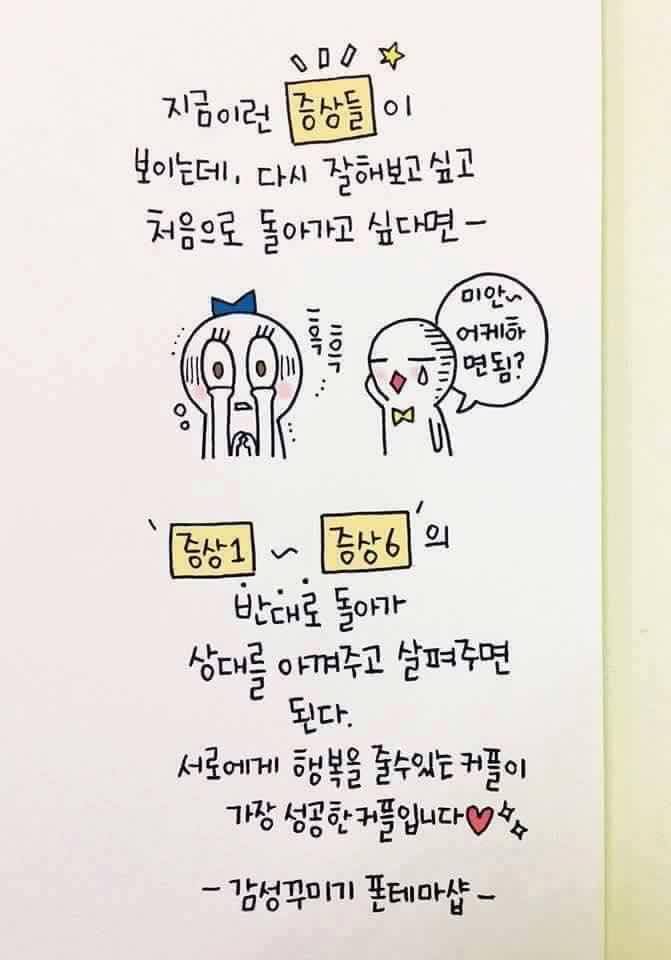 지금이런 증상들이
보이는데, 다시 잘해보고싶고
처음으로 돌아가고 싶다면-
흐흑
흐흑
미안~
어케하
면됨?
'증상1 ~ 증상6'의
반대로 돌아가
상대를 아껴주고 살펴주면
된다.
서로에게 행복을 줄수있는커플이
가장 성공한커플입니다♥
- 감성꾸미기 폰테마샵 -